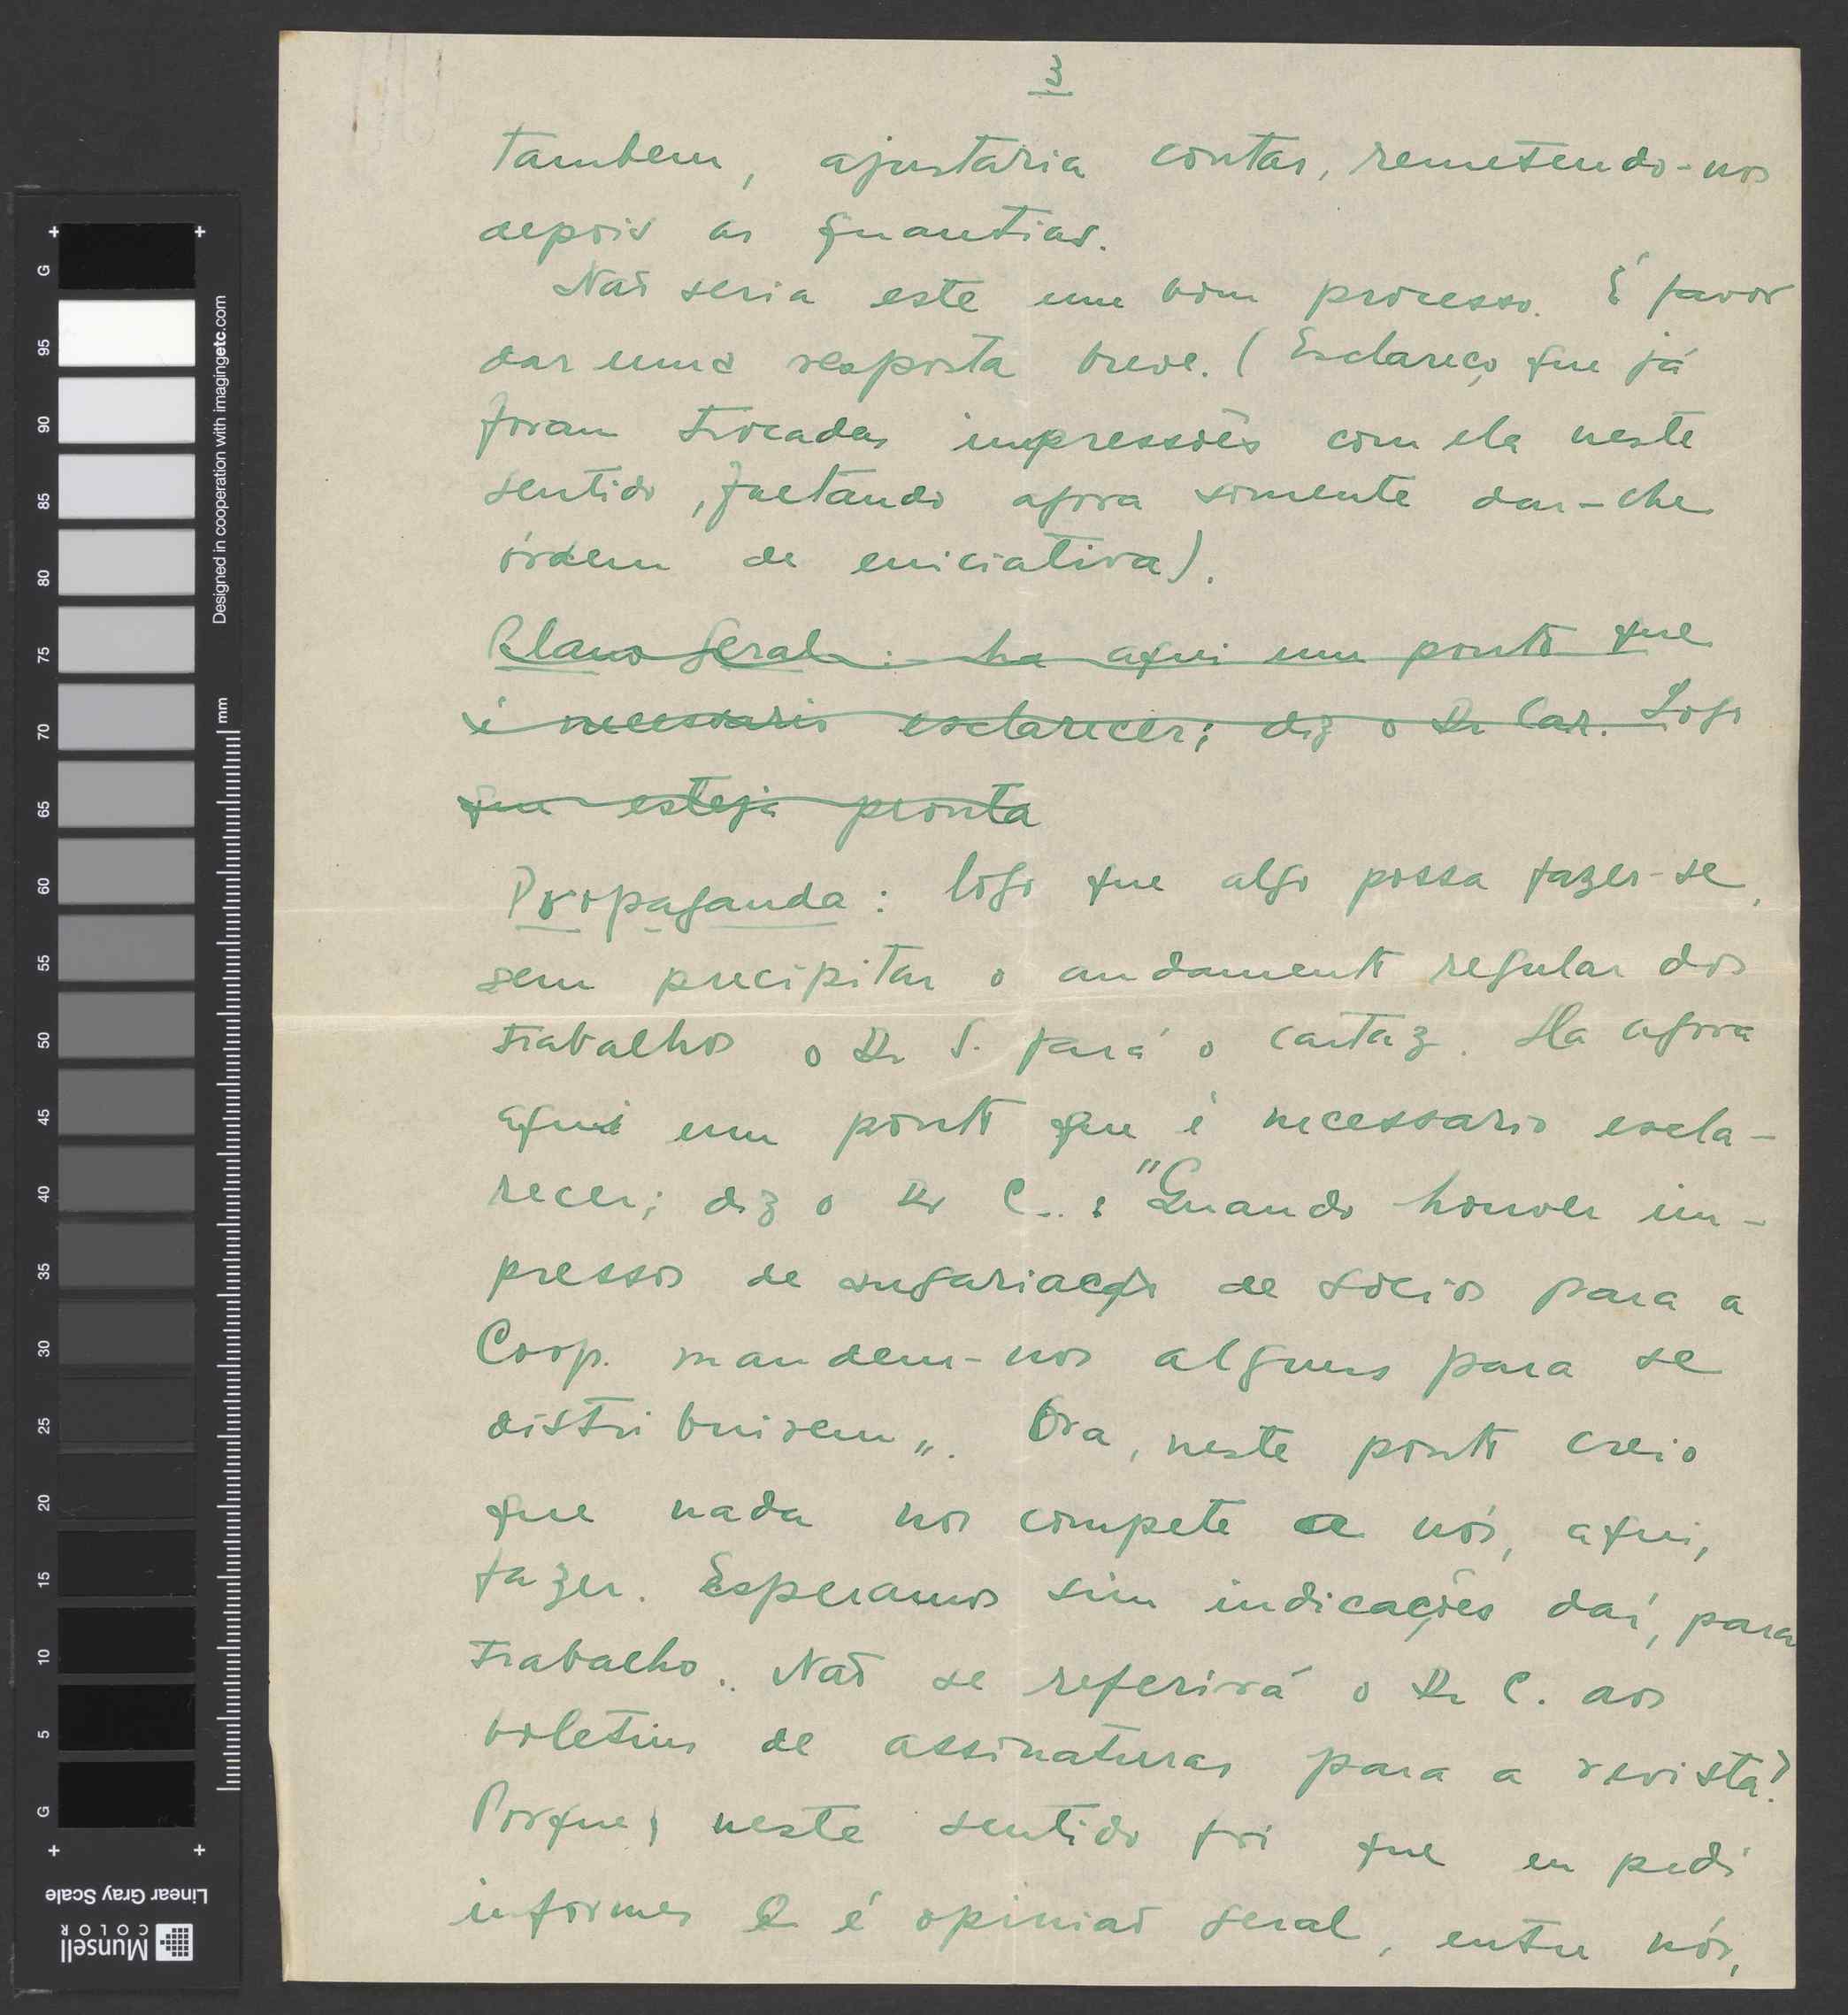 3
tambem, ajustaria contas, remetendo-nos
depois as quantias.
Naõ seria este um bom processo. É favor
dar uma resposta breve. (Esclareço que já
foram trocadas impressoēs com ela neste
sentido, faltando agora somente dar-lhe
órdem de eniciativa).
Plano Geral: ha aqui um ponto que
é necessario esclarecer; diz o Dr Car. Logo
que esteja pronta
Propaganda: logo que algo possa fazer-se,
sem precipitar o andamento regular dos
trabalhos o Dr S. fará o cartaz. Ha agora
aqui um ponto que é necessario escla-
recer; diz o Dr C..: "Quando houver im-
pressos de angariação de sócios para a
Coop. mandem-nos alguns para se
distribuirem„. Ora, neste ponto creio
que nada nos compete a nós, aqui,
fazer. Esperamos sim indicações daí, para
trabalho. Naõ se referirá o Dr C. aos
boletins de assinaturas para a revista?
Porque, neste sentido foi que eu pedi
informes E é opiniaõ geral, entre nós,
G
95
90
85
80
75
70
65
60
55
50
45
40
35
30
25
20
15
10
5
G
mm
Designed in cooperation with imagingetc.com
Linear Gray Scale
Munsell
COLOR